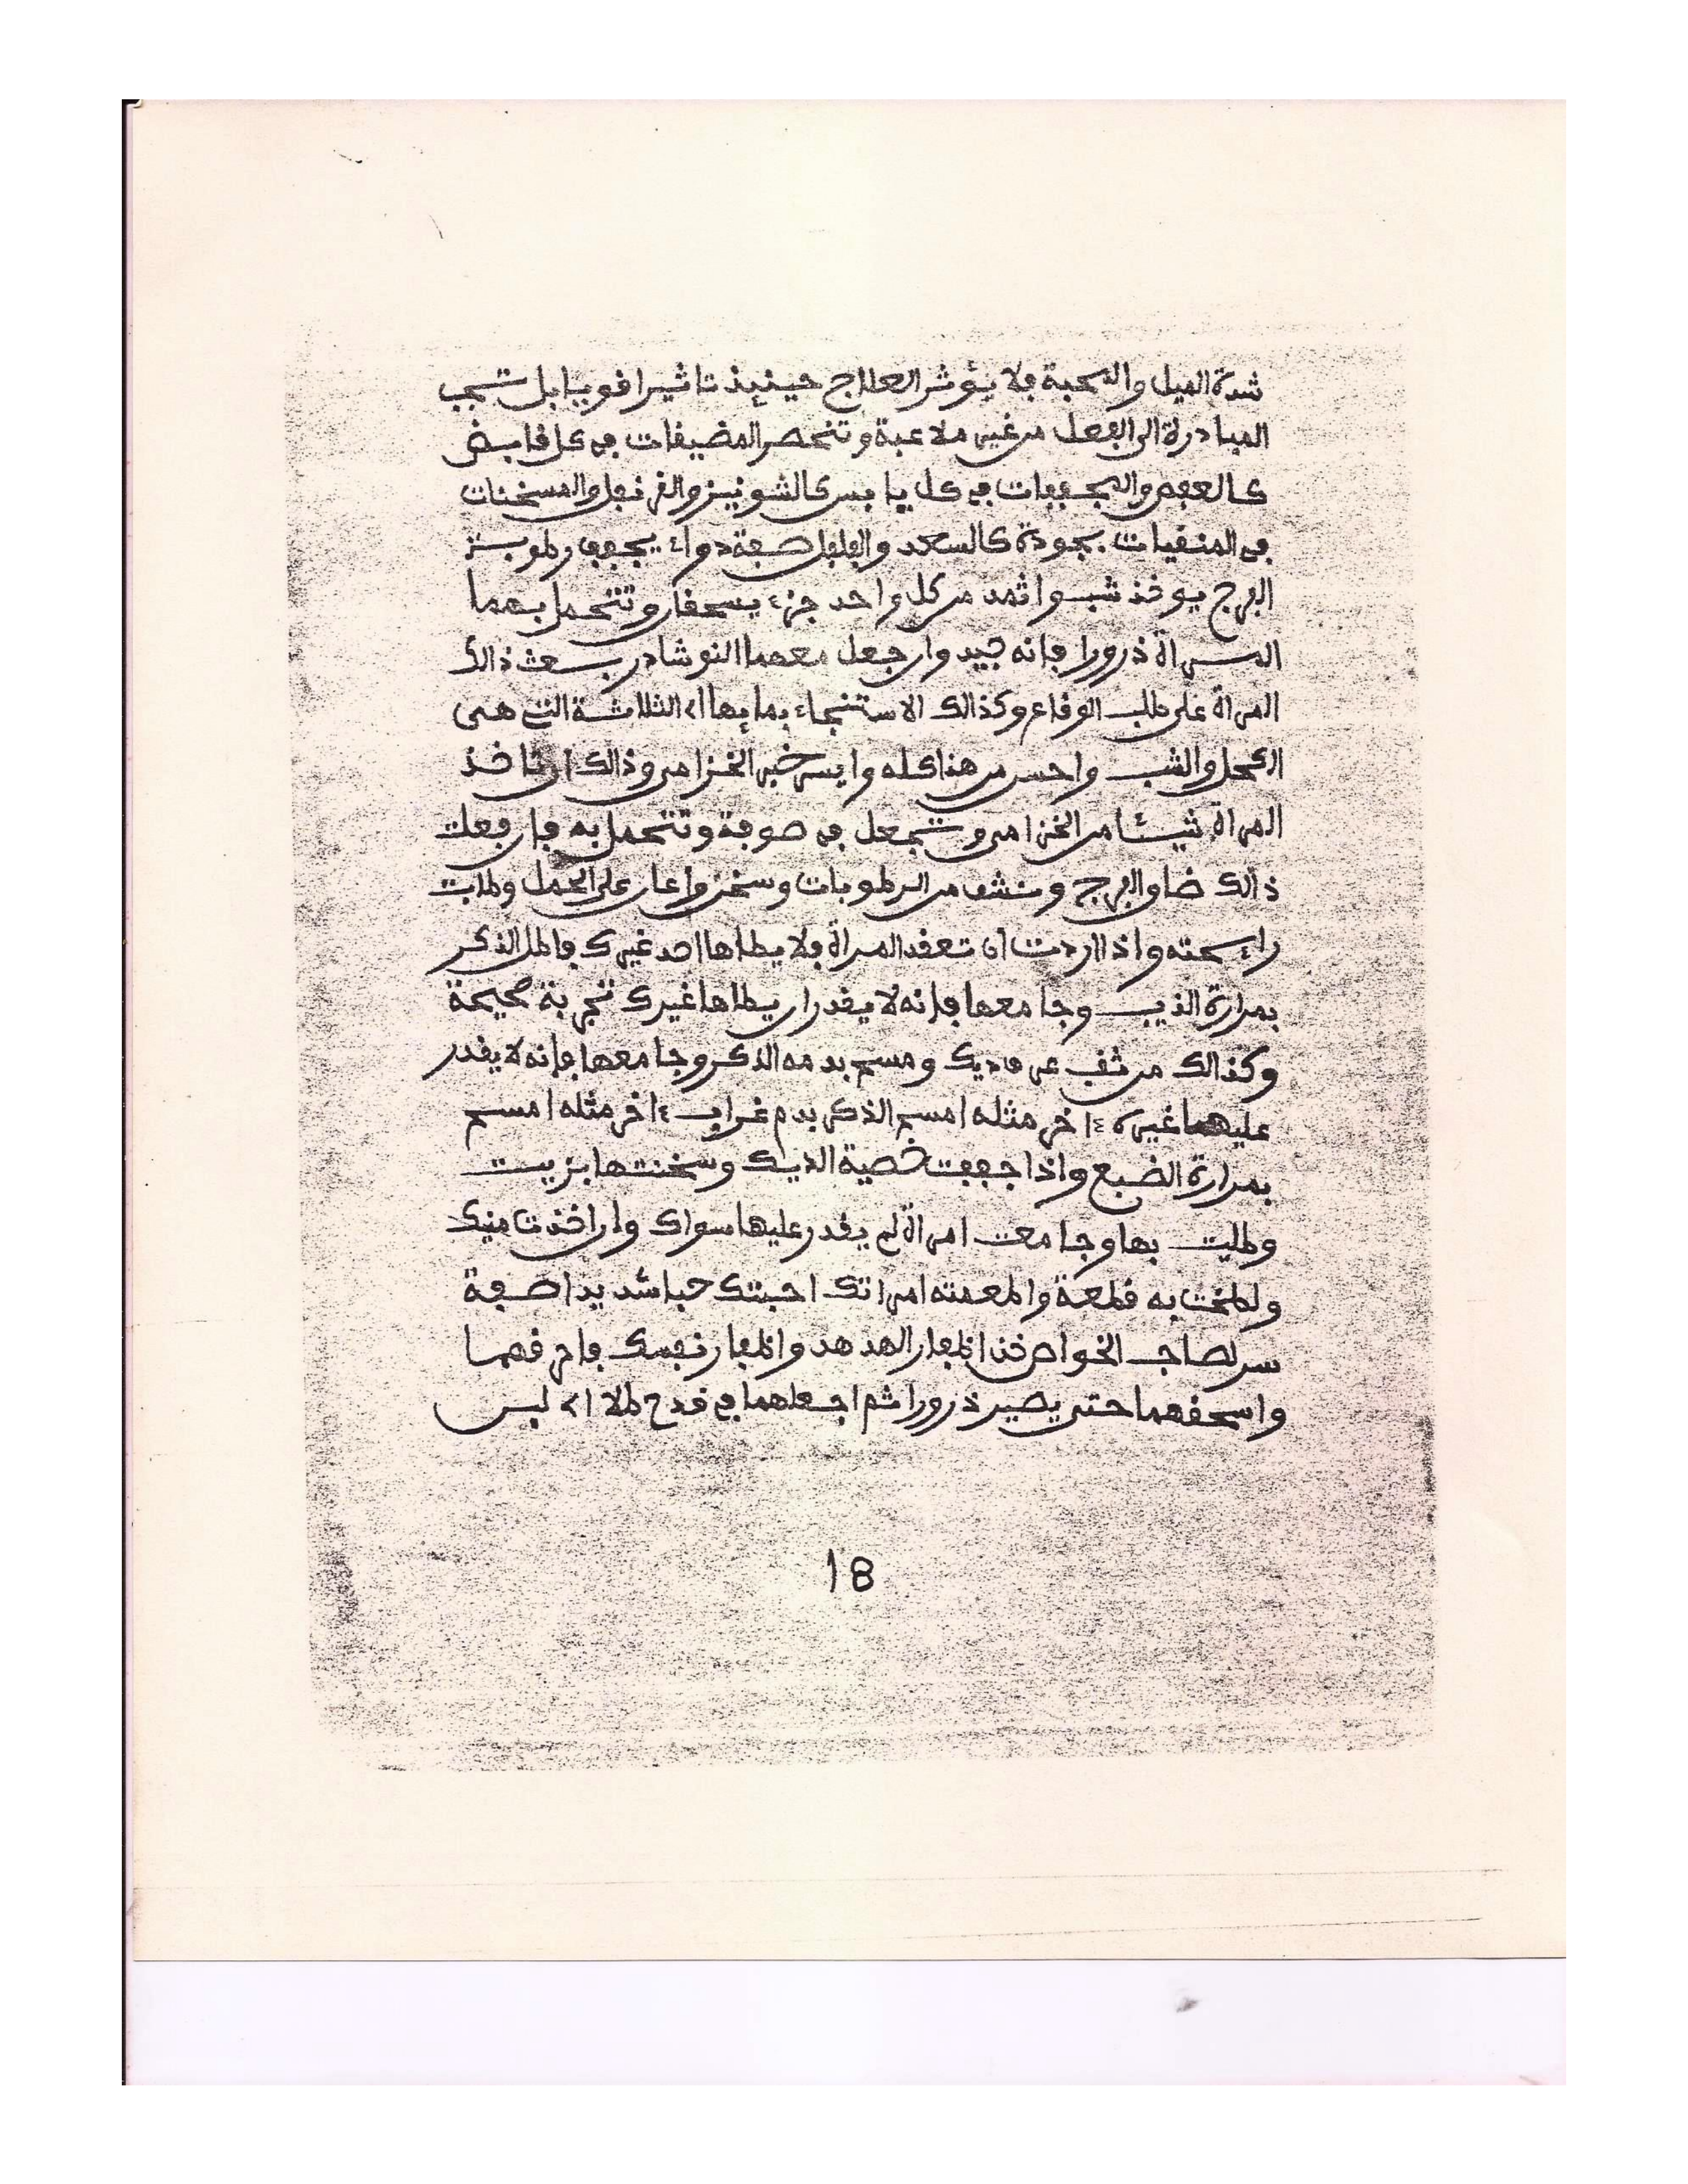 شدة الميل والمحبة فلا يؤثر العلاج حينئذ تاثيرا قويا بل تجب
المبادرة الى الفعل من غير ملاعبة وتنحصر المضيقات في كل قابض
كالعفص والمجففات في كل يابس كالشونيز والقرنفل والمسخنات
في المنقيات بجودة كالسعد والفلفل صفة دواء يجفف رطوبة
الفرج يوخذ شب واثمد من كل واحد جزء يسحقان وتتحمل بهما
المراة ذرورا فانه جيد وان جعل معهما النوشادر بعث ذالك
المراة على طلب الوقاع وكذالك الاستنجاء بماء الثلاثة التي هي
الكحل والشب واحسن من هذا كله وايسر خبر الخزامى وذالك ان تاخذ
المراة شيئا من الخزامى وتجعل في صوفة وتتحمل به فان فعلت
ذالك ضاق الفرج ونشف من الرطوبات وسخن واعان على الحمل وطابت
رائحته واذا اردت ان تعقد المراة فلا يطاها احد غيرك فاطل الذكر
بمرارة الذيب وجامعها فانه لا يقدر ان يطاها غيرك تجربة صحيحة
وكذالك من ثقب عرف ديك ومسح بدمه الذكر وجامعها فانه لا يقدر
عليهما غيره اخر مثله امسح الذكر بدم غراب اخر مثله امسح
بمرارة الضبع واذا جففت خصية الديك وسخنتها بزيت
وطليت بها وجامعت امراة لم يقدر عليها سواك وان اخذت منيك
ولطخت به قطعة واطعمته امراتك احبتك حبا شديدا صفة
سر لصاحب الخواص خذ اظفار الهدهد واظفار نفسك فاحرقهما
واسحقهما حتى يصير ذرورا ثم اجعلهما في قدح طلا لبس
18